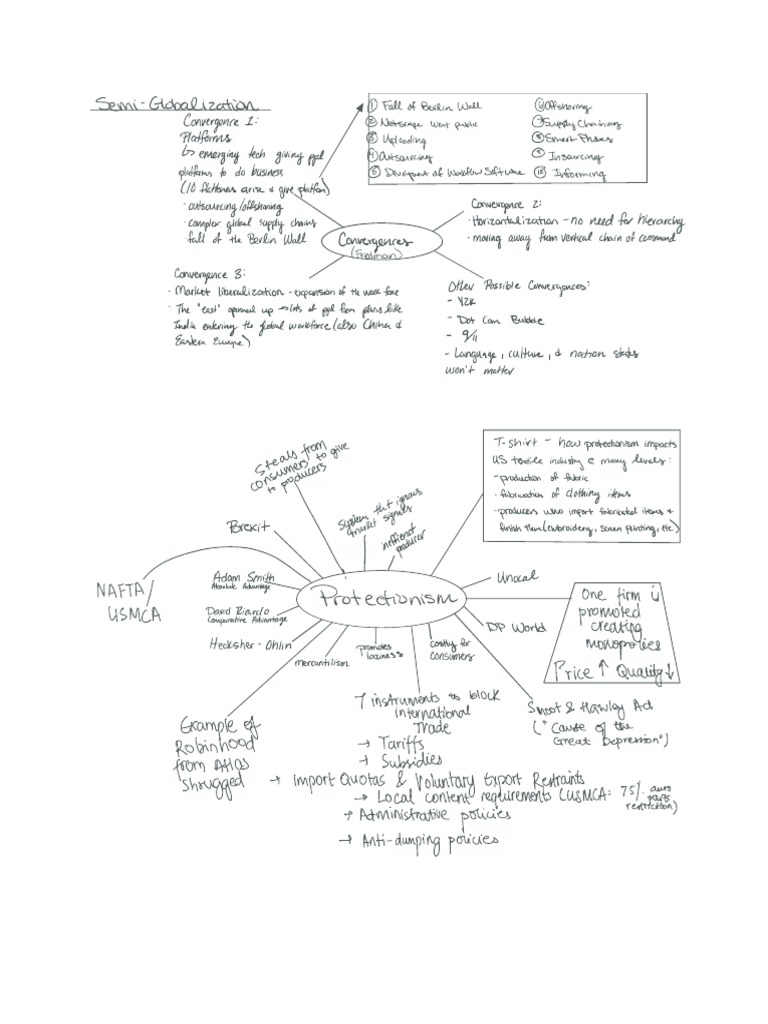 Semi-Globalization
Convergence 1:
Platforms
↳ emerging tech giving ppl
platforms to do business
(10 flatteners arise & give platform)
· outsourcing/offshoring
· complex global supply chains
· fall of the Berlin Wall
① Fall of Berlin Wall
② Netscape went public
③ Uploading
④ Outsourcing
⑤ Development of Workflow Software
⑥ Offshoring
⑦ Supply Chaining
⑧ Smart Phones
⑨ Insourcing
⑩ Informing
Convergences
(Friedman)
Convergence 2:
· Horizontalization - no need for hierarchy
· moving away from vertical chain of command
Convergence 3:
· Market liberalization - expansion of the work force
· The "east" opened up → lots of ppl from places like
India entering the global workforce (also China &
Eastern Europe)
Other Possible Convergences:
- Y2K
- Dot Com Bubble
- 9/11
- Language, culture, & nation states
won't matter
Steals from
consumers to give
to producers
System that ignores
market signals
inefficient
producer
T-shirt - how protectionism impacts
US textile industry @ many levels:
- production of fabric
- fabrication of clothing items
- producers who import fabricated items &
finish them (embroidery, screen printing, etc)
Brexit
NAFTA/
USMCA
Adam Smith
Absolute Advantage
David Ricardo
Comparative Advantage
Hecksher-Ohlin
mercantilism
Protectionism
promotes
laziness
costly for
consumers
Unocal
DP World
One firm is
promoted
creating
monopolies
Price ↑ Quality ↓
Smoot & Hawley Act
("Cause of the
Great Depression")
Example of
Robinhood
from Atlas
Shrugged
7 instruments to block
international
Trade
→ Tariffs
→ Subsidies
→ Import Quotas & Voluntary Export Restraints
→ Local content requirements (USMCA: 75% auto
parts
restriction)
→ Administrative policies
→ Anti-dumping policies